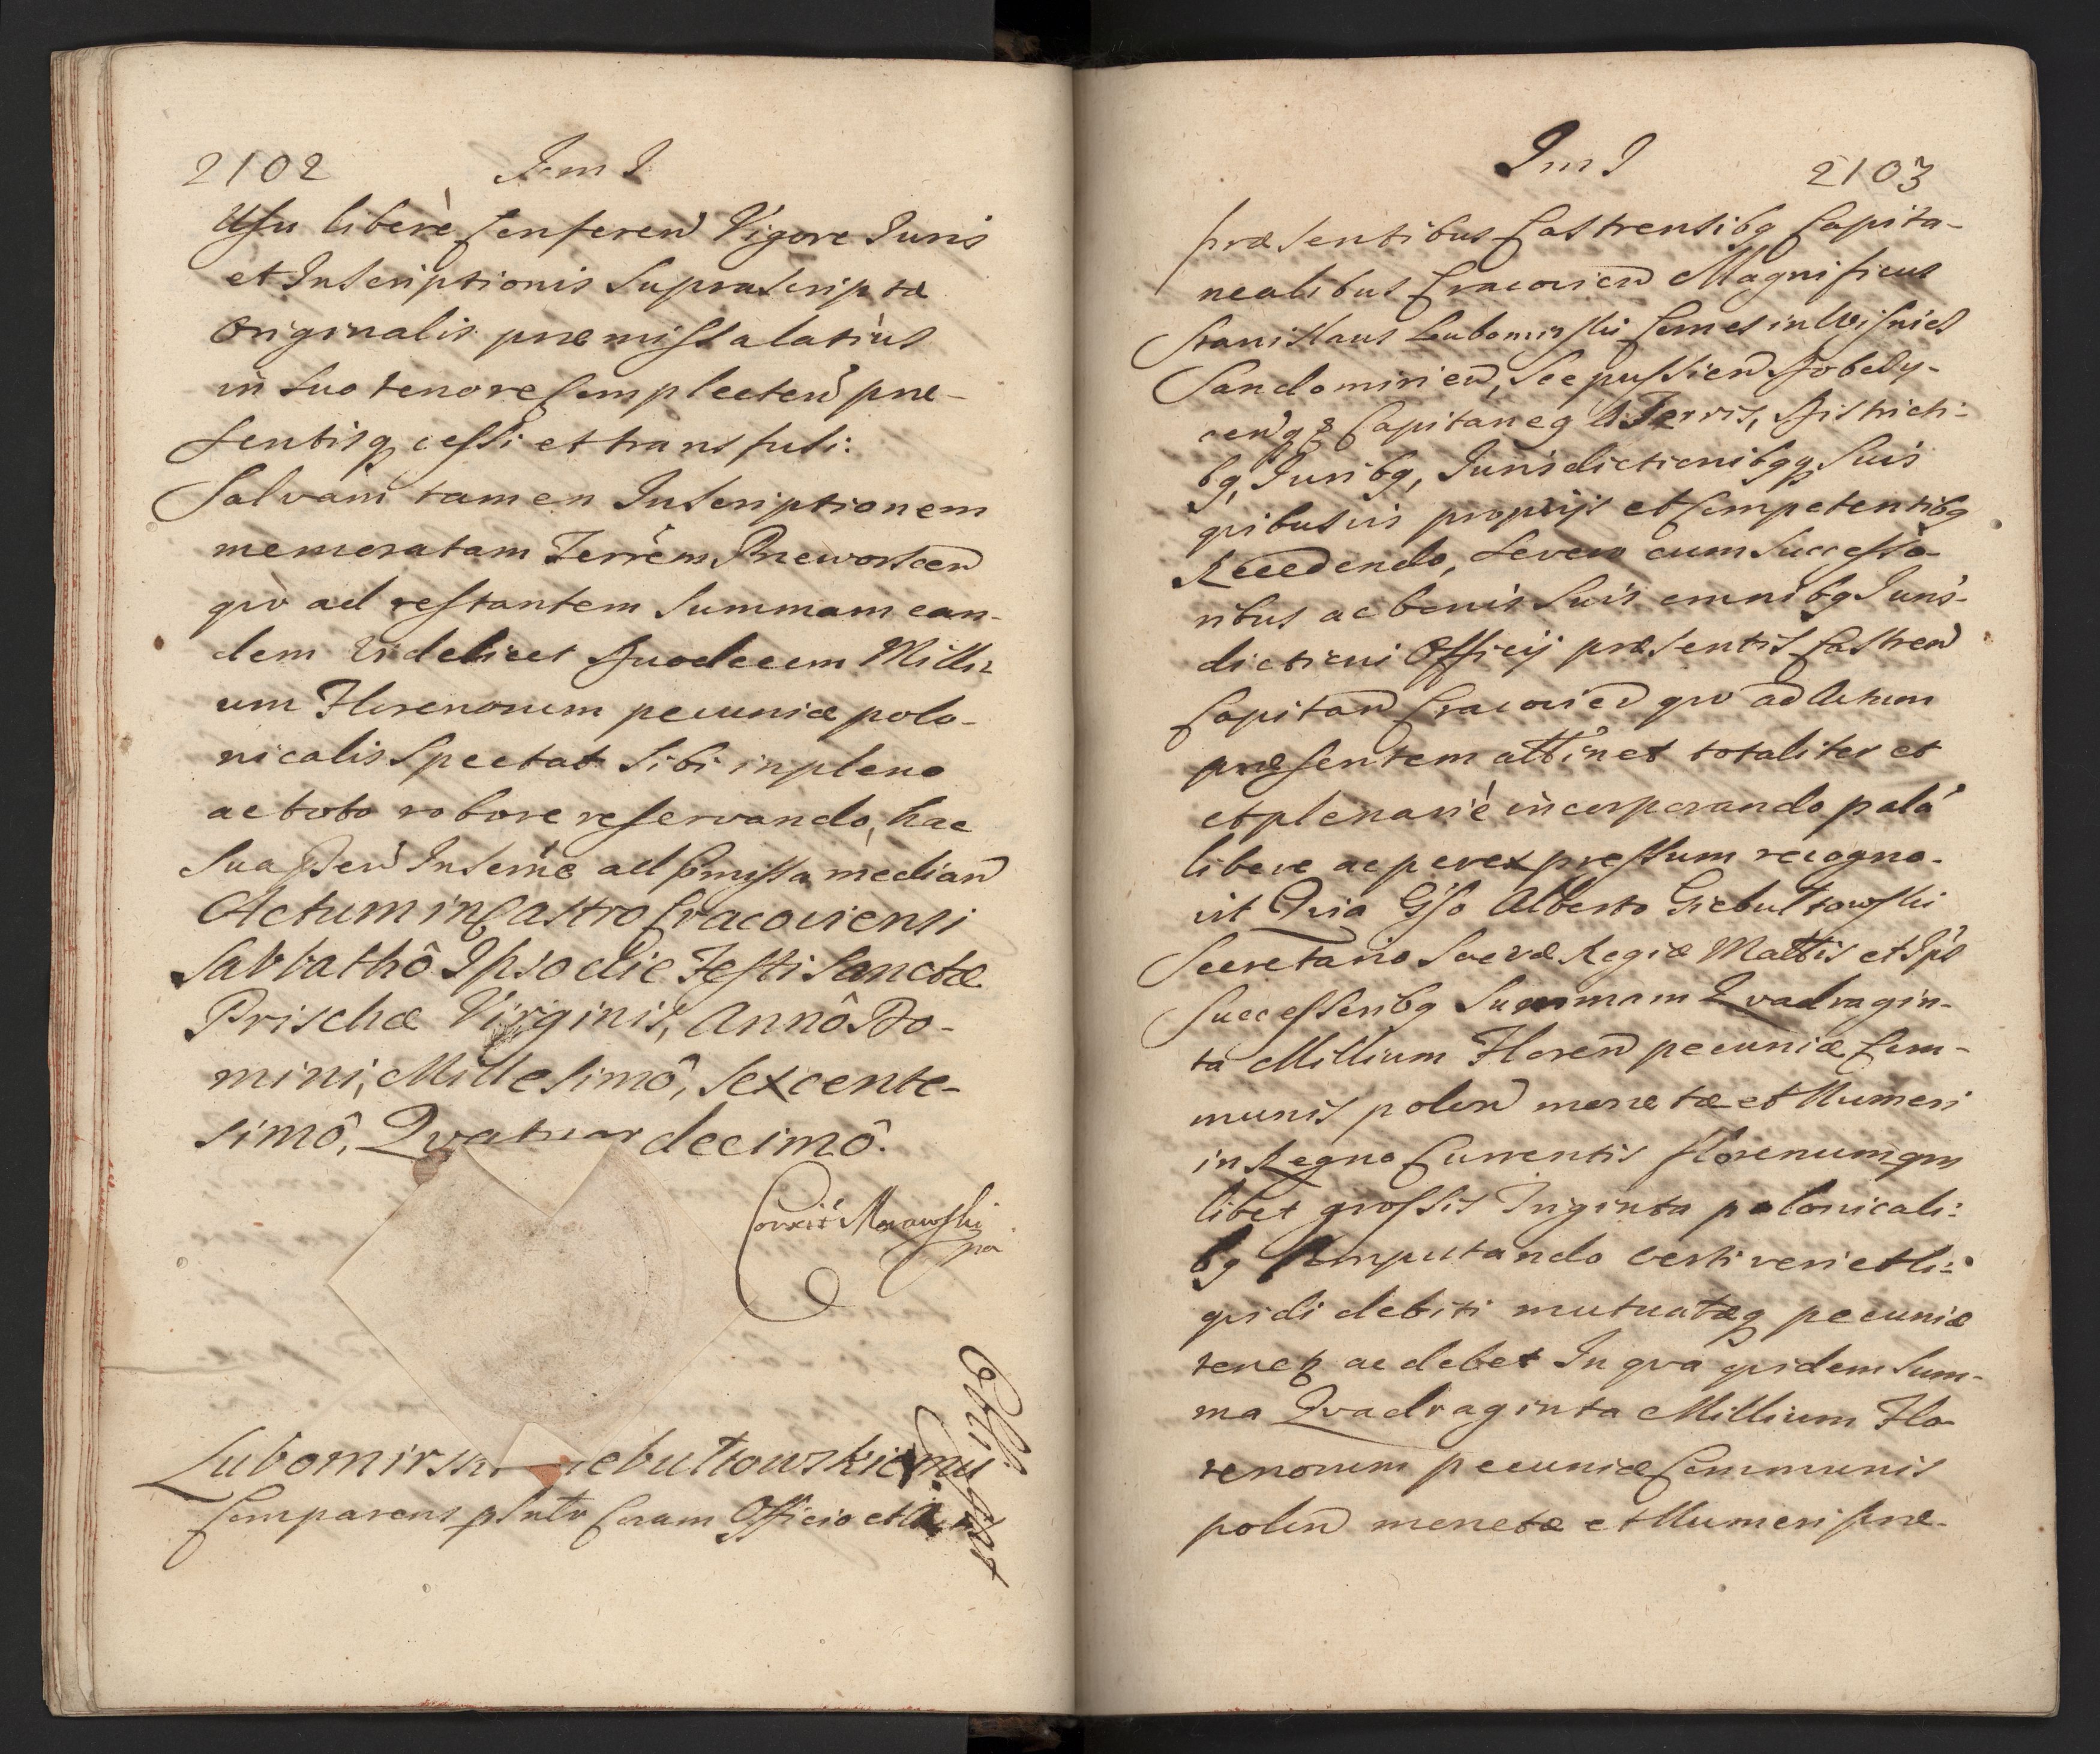 2102 Tom I
Usu liberè Conferen Vigore Juris
et Inscriptionis Suprascriptæ
Originalis præmissa latiùs
in suo tenore Complecten præ-
sentisq cessi et transfusi:
Salvam tamen Inscriptionem
memoratam Terrem Preworscen
qvo ad restantem Summam ean-
dem Videlicet Duodecem Milli-
um Florenorum pecuniæ polo-
nicalis Spectat Sibi in pleno
ac toto robore reservando, hac
Sua Inscrine ad pmissa median
Actum in Castro Cracoviensi
Sabbathô Ipso die Festi Sanctæ
Prischæ Virginis, Annô Do-
mini, Millesimô, Sexcente-
simô, Qvatuor decimô.
Corxit Morawski
Lubomirski
Comparens psntr Coram Officio et
Tom I 2103
præsentibus Castrensibq Capita-
nealibus Cracovien Magnificus
Stanislaus Lubomirski Comes in Wisnicz
Sandomirien, Scepussien Dobczy-
cenq Capitaneq à Terris, Districti-
bq, Juribq, Jurisdictionibqq Suis
qvibusvis proprijs et Competentibq
Recedendo, Severo cum Successo-
ribus ac bonis Suis omnibq Juris-
dictioni Officij præsentis Castren
Capitan Cracovien qvo ad Actum
præsentem attinet totaliter et
et plenariè incorporando palā
libere ac per expressum recogno-
vit Qvia Gso Alberto Giebultowski
Secretario Sacræ Regiæ Mattis et Ips
Successoribq Summam Qvadragin-
ta Millium Floren pecuniæ Com-
munis polon monetæ et Numeri
in Regno Currentis florenum qm
libet grossis Triginta polonicali:
bq Computando certi veri et li-
qvidi debiti mutuatæq pecuniæ
tenet ac debet In qva qvidem Sum-
ma Qvadraginta Millium Flo-
renorum pecuniæ Communis
polon monetæ et Numeri præ-